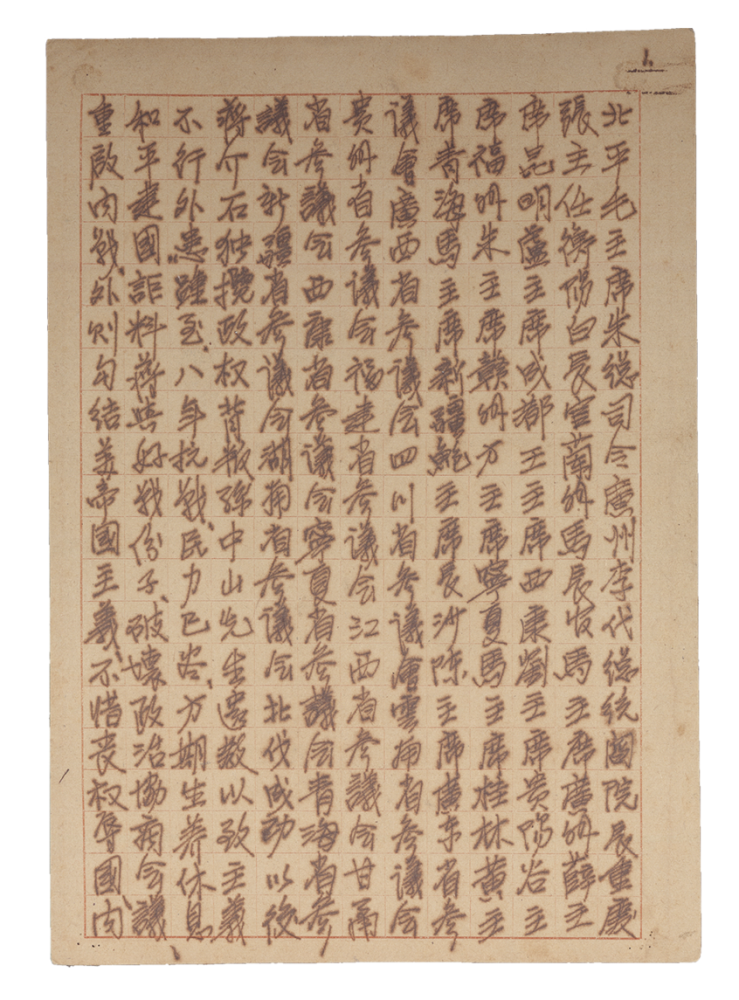 1.
北平毛主席朱總司令廣州李代總統閻院長重慶
張主任衡陽白長官蘭州馬長官馬主席廣州薛主
席昆明盧主席成都王主席西康劉主席貴陽谷主
席福州朱主席贛州方主席寧夏馬主席桂林黃主
席青海馬主席新疆鮑主席長沙陳主席廣東省參
議會廣西省參议会四川省参议會雲南省参议会
贵州省参議会福建省参議会江西省參議会甘肅
省參議会西康省參议会寧夏省參議会青海省參
議会新疆省参议会湖南省参议会北伐成功以後
蔣介石独攬政权背叛孫中山先生遺教以致主義
不行外患踵至、八年抗戰、民力已容、方期生养休息
和平建國詎料蔣與好戰份子、破壞政治協商会議、
重啟内戰、外則勾结美帝國主義、不惜丧权辱國、内